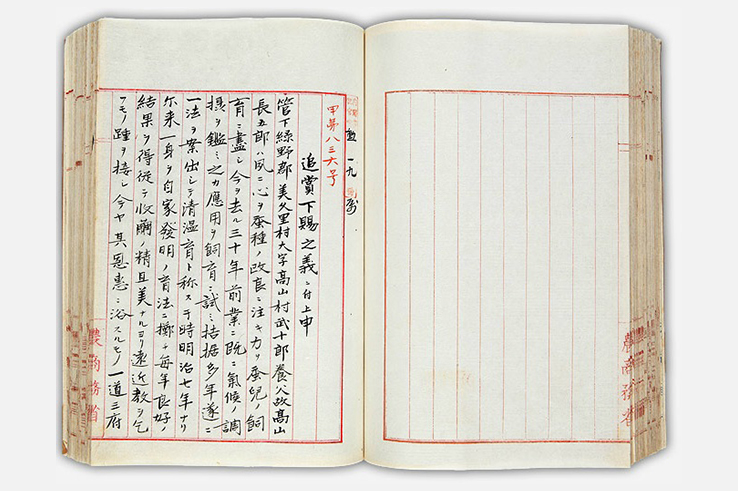 勲一九
甲第八三六号
追賞下賜之義ニ付上申
管下緑野郡美久里村大字高山村武十郎養父故高山
長五郎ハ夙ニ心ヲ蚕種ノ改良ニ注キ力ヲ蚕児ノ飼
育ニ盡シ今ヲ去ル三十年前業ニ既ニ氣候ノ調
摂ヲ鑑ミ之カ應用ヲ飼育ニ試ミ拮据多年遂ニ
一法ヲ案出シテ清温育ト称ス干時明治七年ナリ
尓来一身ヲ自家發明ノ育法ニ擲チ毎年良好ノ
結果ヲ得従テ收繭ノ精且美ナルヨリ遠近教ヲ乞
フモノ踵ヲ接シ今ヤ其恩惠ニ浴スルモノ一道三府
農商務省
農商務省